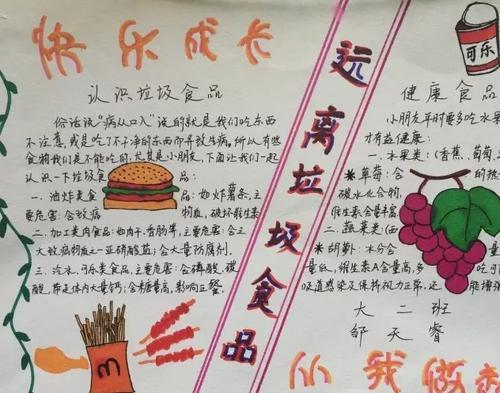 快乐成长
认识垃圾食品
俗话说“病从口入”说的就是我们吃东西
不注意,或是吃了不干净的东西而导致生病,所以有些
食物我们是不能吃的,尤其是小朋友,下面让我们一起
认识一下垃圾食品:
一、油炸类食品:如炸薯条,主
要危害:含致癌物质,破坏维生素
二、加工类肉食品:如肉干、香肠等,主要危害:含三
大致癌物质之一亚硝酸盐;含大量防腐剂.
三、汽水、可乐类食品,主要危害:含磷酸、碳
酸,带走体内大量钙;含糖量高,影响正餐
远离垃圾食品
可乐
健康食品
小朋友平时要多吃水果
才有益健康:
一、水果类:(香蕉、葡萄、
★草莓:含
碳水化合物,
维生素含量丰富
二、蔬菜类:(西
★胡萝卜:水分含
量低,维生素A含量高,多吃
吸道感染及保持视力正常,还能增强
大二班
邹天睿
从我做